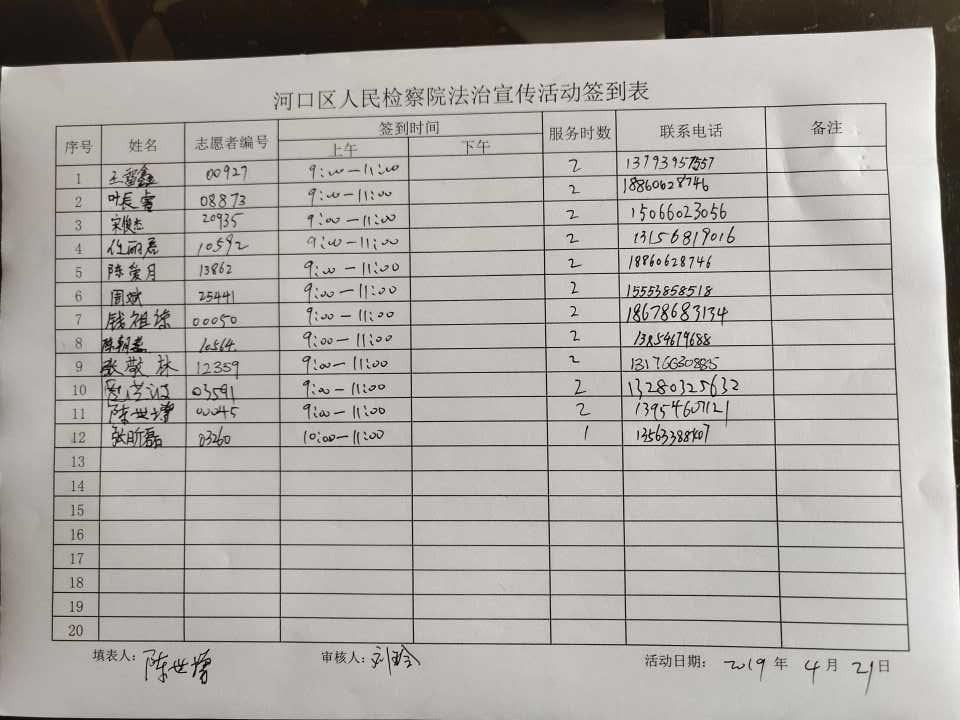 河口区人民检察院法治宣传活动签到表
序号 姓名 志愿者编号 签到时间 服务时数 联系电话 备注
上午 下午
1 00927 9:00-11:00 2
2 叶长睿 08873 9:00-11:00 2 18860628746
3 宋俊杰 20935 9:00-11:00 2 15066023056
4 任丽君 10592 9:00-11:00 2 13156819016
5 陈爱月 13862 9:00-11:00 2 18860628746
6 周斌 25441 9:00-11:00 2 15553858518
7 钱祖 00050 9:00-11:00 2 18678683134
8 10564 9:00-11:00 2 13854679688
9 张敬林 12359 9:00-11:00 2 13176630885
10 03591 9:00-11:00 2 13280325632
11 陈世增 00045 9:00-11:00 2
12 张昕磊 03260 10:00-11:00 1
13
14
15
16
17
18
19
20
填表人: 陈世增 审核人: 刘玲 活动日期: 2019 年 4 月 21 日